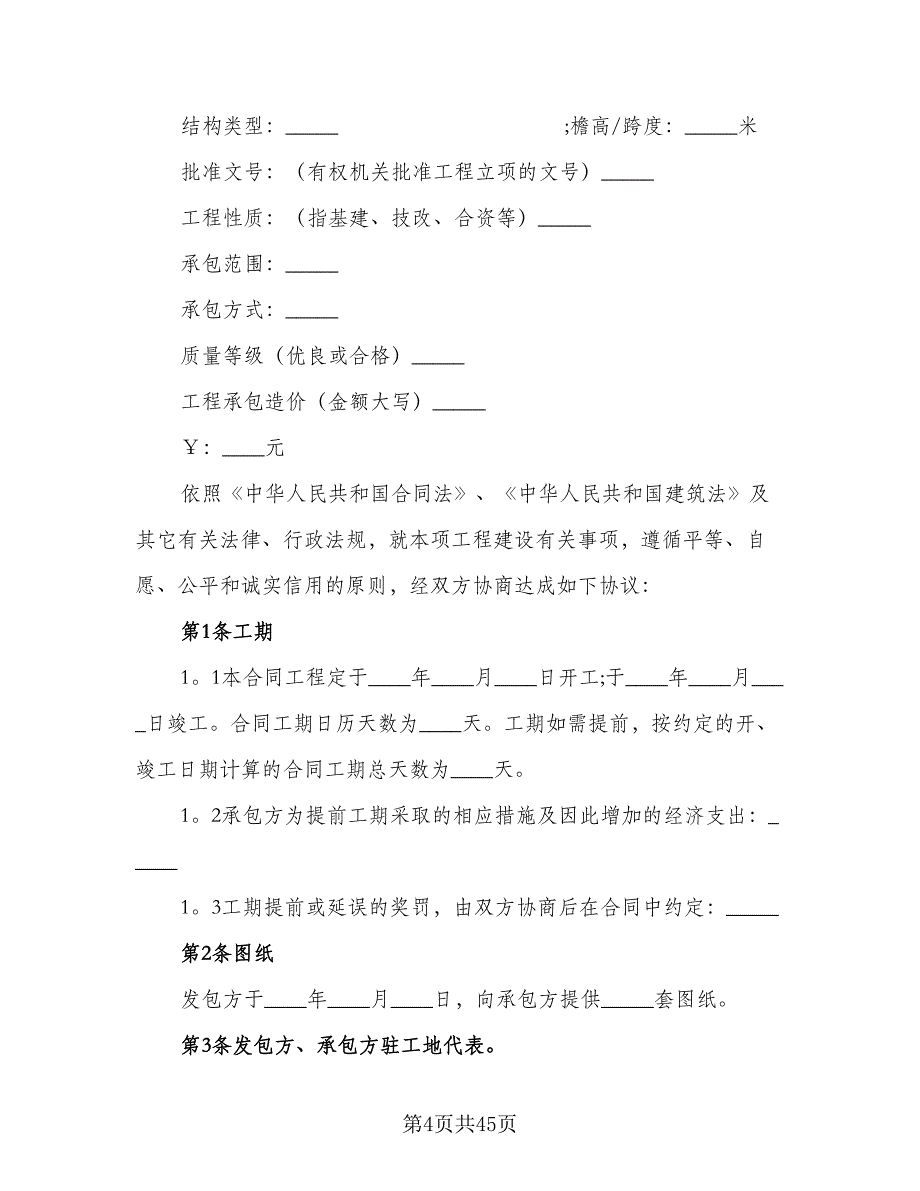 结构类型：_____ ;檐高/跨度：_____米
批准文号：（有权机关批准工程立项的文号）_____
工程性质：（指基建、技改、合资等）_____
承包范围：_____
承包方式：_____
质量等级（优良或合格）_____
工程承包造价（金额大写）_____
￥：____元
依照《中华人民共和国合同法》、《中华人民共和国建筑法》及
其它有关法律、行政法规，就本项工程建设有关事项，遵循平等、自
愿、公平和诚实信用的原则，经双方协商达成如下协议：
第1条工期
1。1本合同工程定于____年____月____日开工;于____年____月___
_日竣工。合同工期日历天数为____天。工期如需提前，按约定的开、
竣工日期计算的合同工期总天数为____天。
1。2承包方为提前工期采取的相应措施及因此增加的经济支出：_
____
1。3工期提前或延误的奖罚，由双方协商后在合同中约定：_____
第2条图纸
发包方于____年____月____日，向承包方提供_____套图纸。
第3条发包方、承包方驻工地代表。
第4页共45页